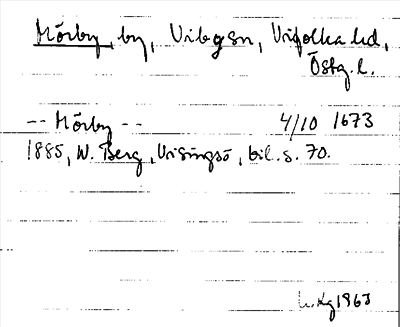 Mörby, by, Vibysn, Vifolka hd,
Östg. l.
-- Mörby -- 4/10 1673
1885, W. Berg, Visingsö, bil. s. 70.
1963